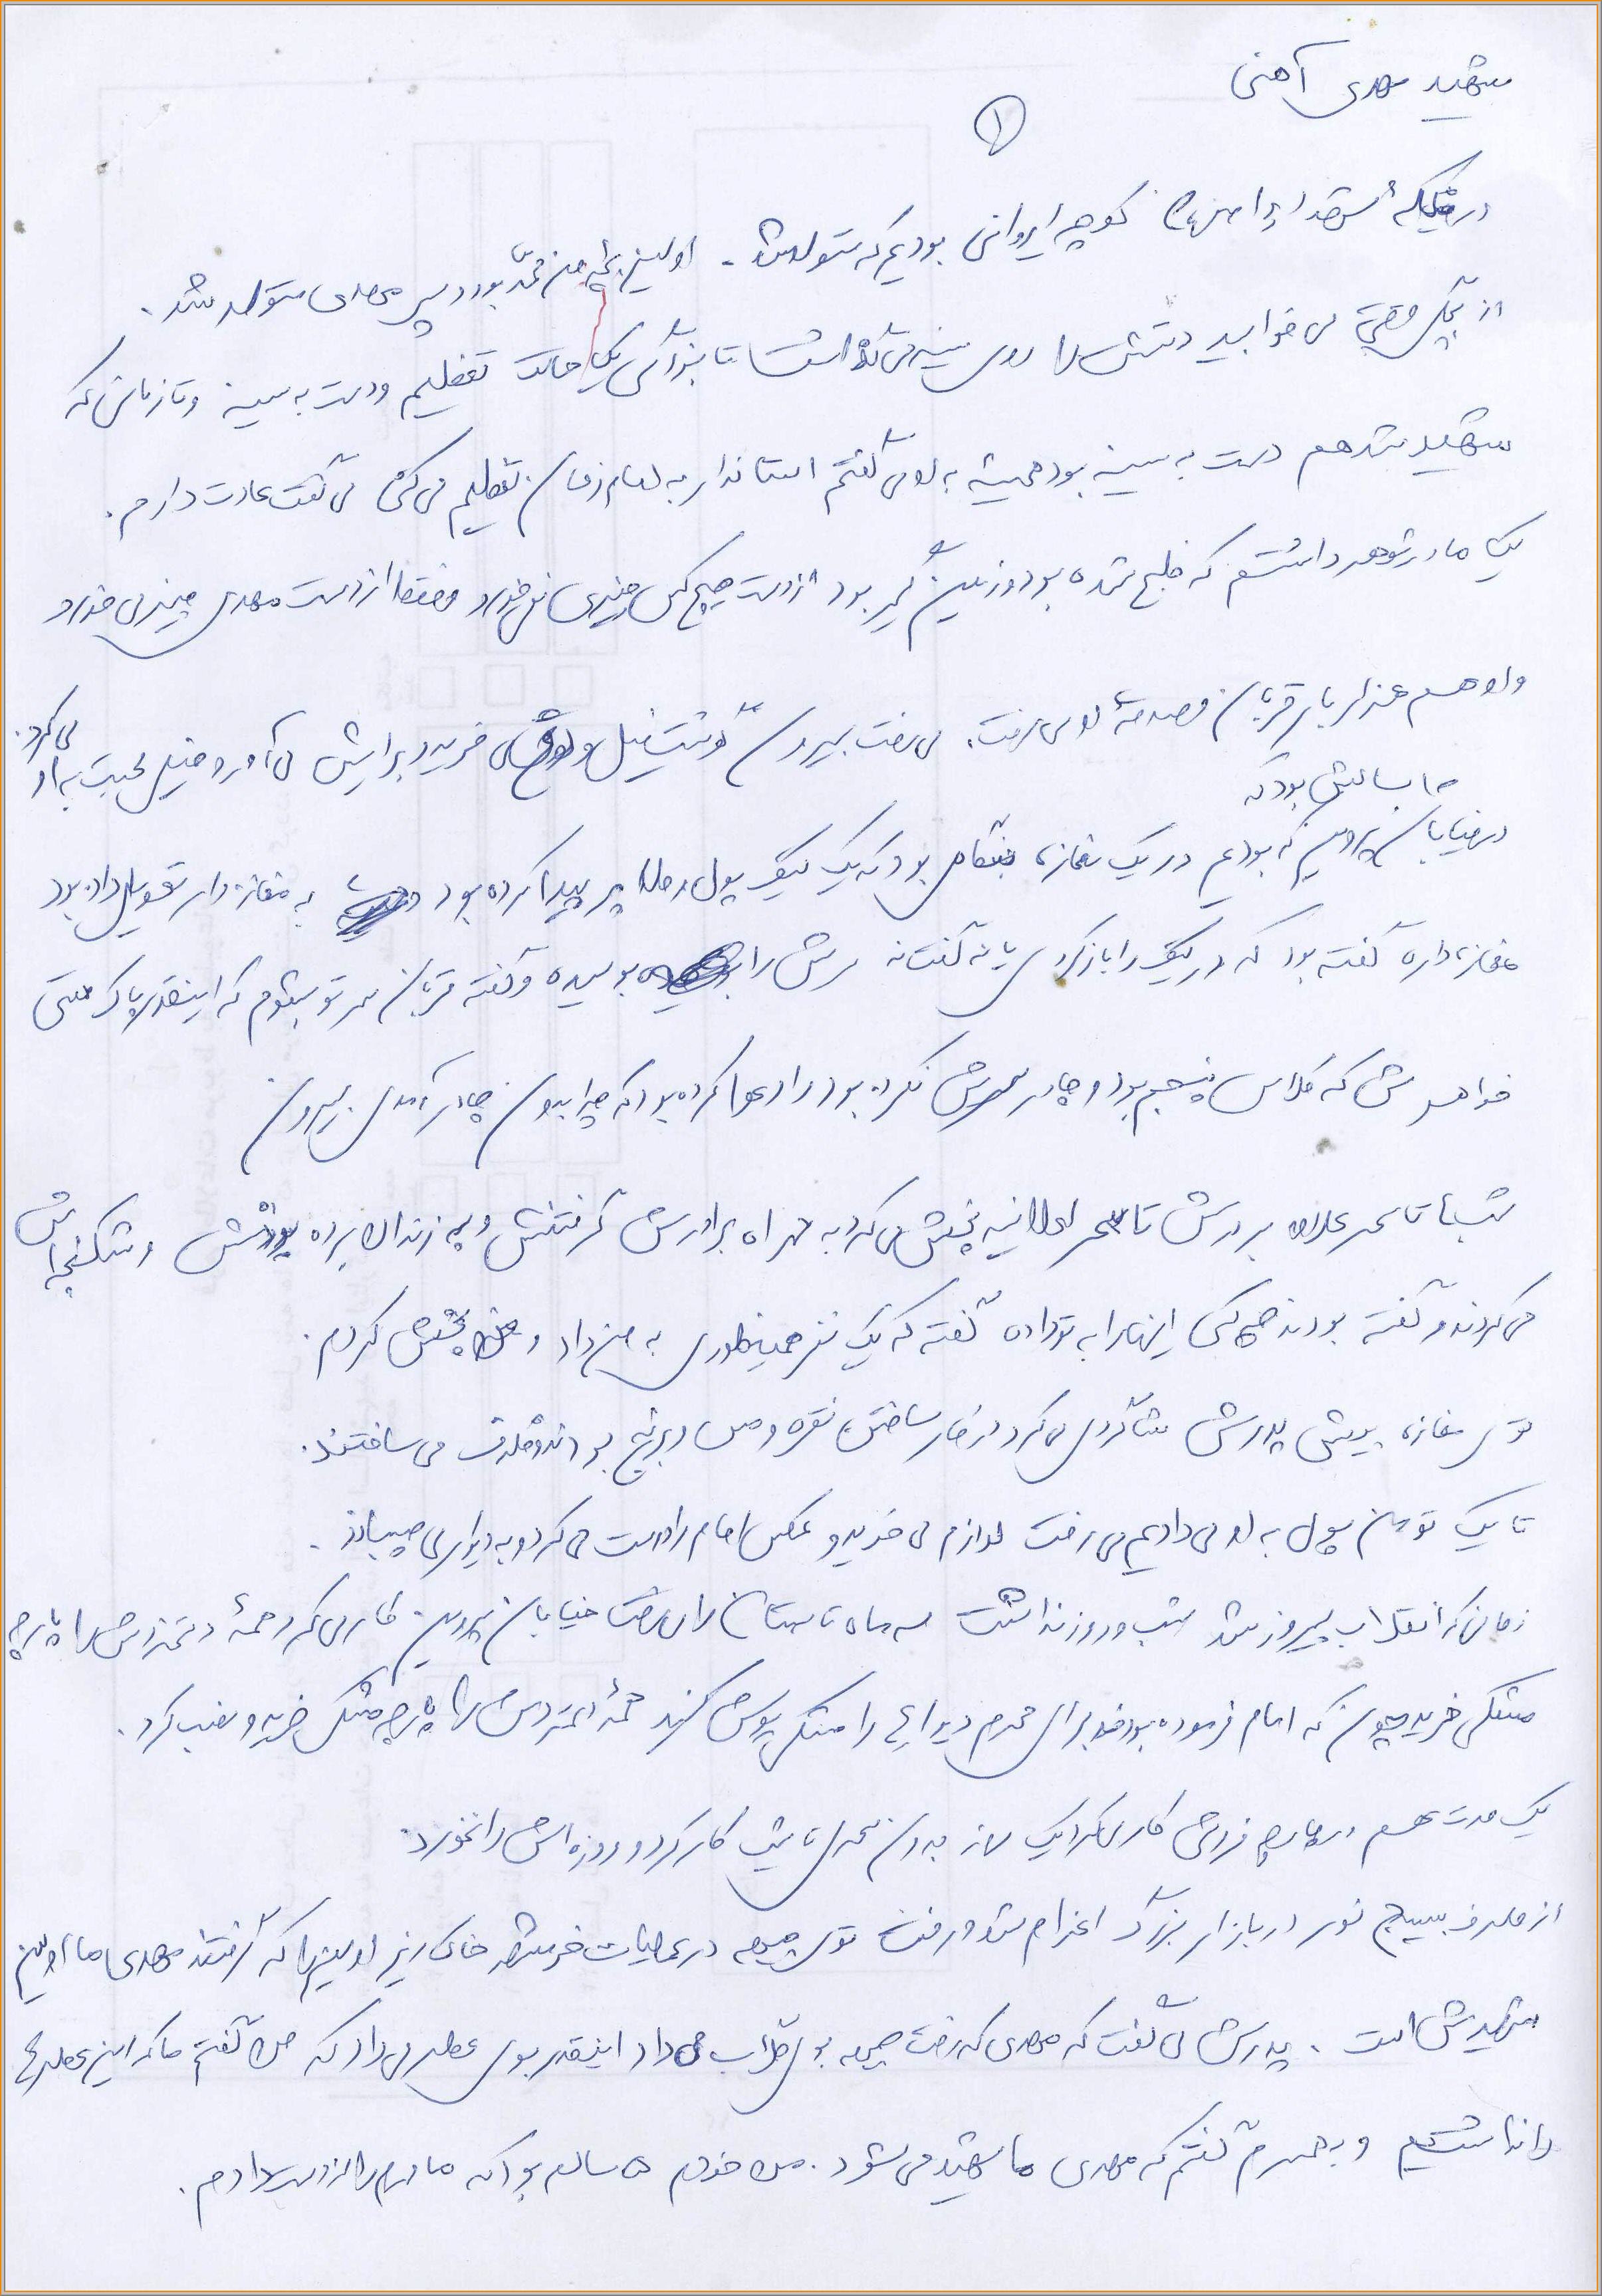 شهید مهدی آهنی
۱
کوچه ایروانی بودیم که متولد شد. اولین بچه من محمد بود و سپس مهدی متولد شد.
از بچگی وقتی می خوابید دستش را روی سینه می گذاشت تا بزرگی یک حالت تعظیم و دست به سینه و تا زمانی که
شهید شد هم دست به سینه بود همیشه به او می گفتم امان تعظیم می کنی می گفت عادت دارم.
یک مادر شوهر داشتم که فلج شده بود و زمین گیر بود از دست هیچ کس چیزی نمی خورد و فقط از دست مهدی چیز می خورد
و او هم هزار بار قربان صدقه او می رفت. می رفت بیرون گوشت فیل و می خرید و برایش می آورد و خیلی محبت به او می کرد.
۱۰ سالش بود که
در خیابان پروین که بودیم در یک مغازه بقالی بود که یک کیف پول طلا پر پیدا کرده بود به مغازه دار تحویل داده بود
مغازه داره گفته بود که در کیف را باز کردی یا نه گفت نه سرش را بوسیده و گفته قربان سر تو بشوم که اینقدر پاک هستی
خواهرش که کلاس پنجم بود و چادر سرش نکرده بود را دعوا کرده بود که چرا بدون چادر آمدی بیرون
شبها تا سحر همراه برادرش تا سحر اعلامیه پخش می کرد به همراه برادرش گرفتنش و به زندان برده بودنش و شکنجه اش
می کردند و گفته بودند چه کسی اینها را به تو داده گفته که یک نفر همینطوری به من داد و من پخش کردم.
توی مغازه پیش پدرش شاگردی می کرد در کار ساختن نقره و مس و برنج بودند و ظرف می ساختند.
تا یک تومان پول به او می دادیم می رفت لوازم می خرید و عکس امام را درست می کرد و به دیوار می چسباند.
زمانی که انقلاب پیروز شد شب و روز نداشت سه ماه تابستان را می رفت خیابان پروین کار می کرد و همهٔ دستمزدش را پارچه
مشکی خرید چون که امام فرموده بودند برای محرم دیوارها را مشکی پوش کنید همهٔ دستمزدش را پارچه مشکی خرید و نصب کرد.
یک مدت هم در پارچه فروشی کار می کرد یک روز بدون سحری تا شب کار کرد و روزه اش را نخورد.
از طرف بسیج نور در بازار بزرگ اعزام شد و رفت توی جبهه در عملیات خرمشهر خاکریز اولین را که گرفتند مهدی ما اولین
شهیدش است. پدرش می گفت که مهدی که رفت جبهه بوی گلاب می داد اینقدر بوی عطر می داد که من گفتم ما که این عطرها
را نداشتیم و به همسرم گفتم که مهدی ما شهید می شود. من خودم ۵ سالم بود که مادرم را از دست دادم.